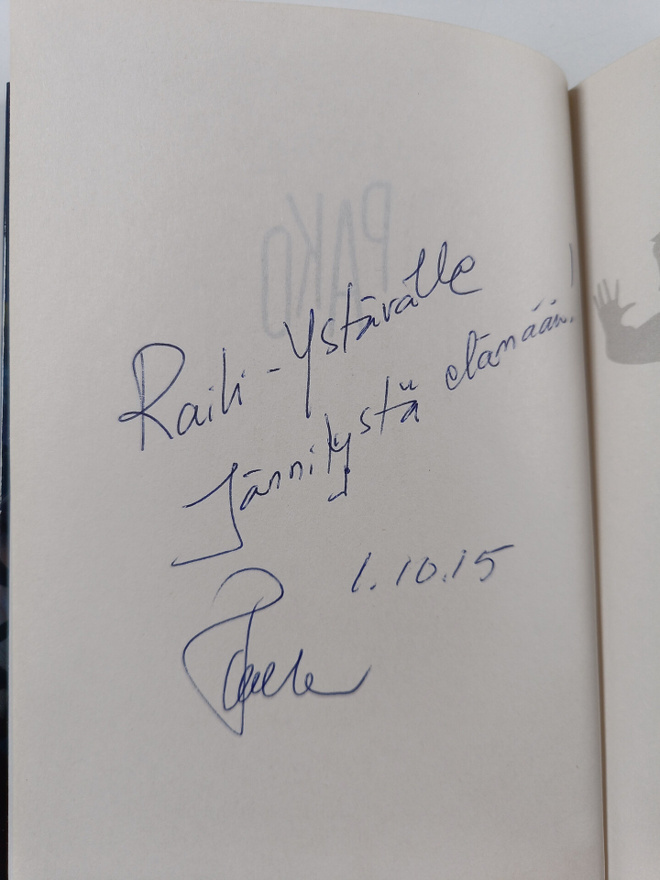 PAKO
Raili-Ystävälle
Jännitystä elämään!
1.10.15